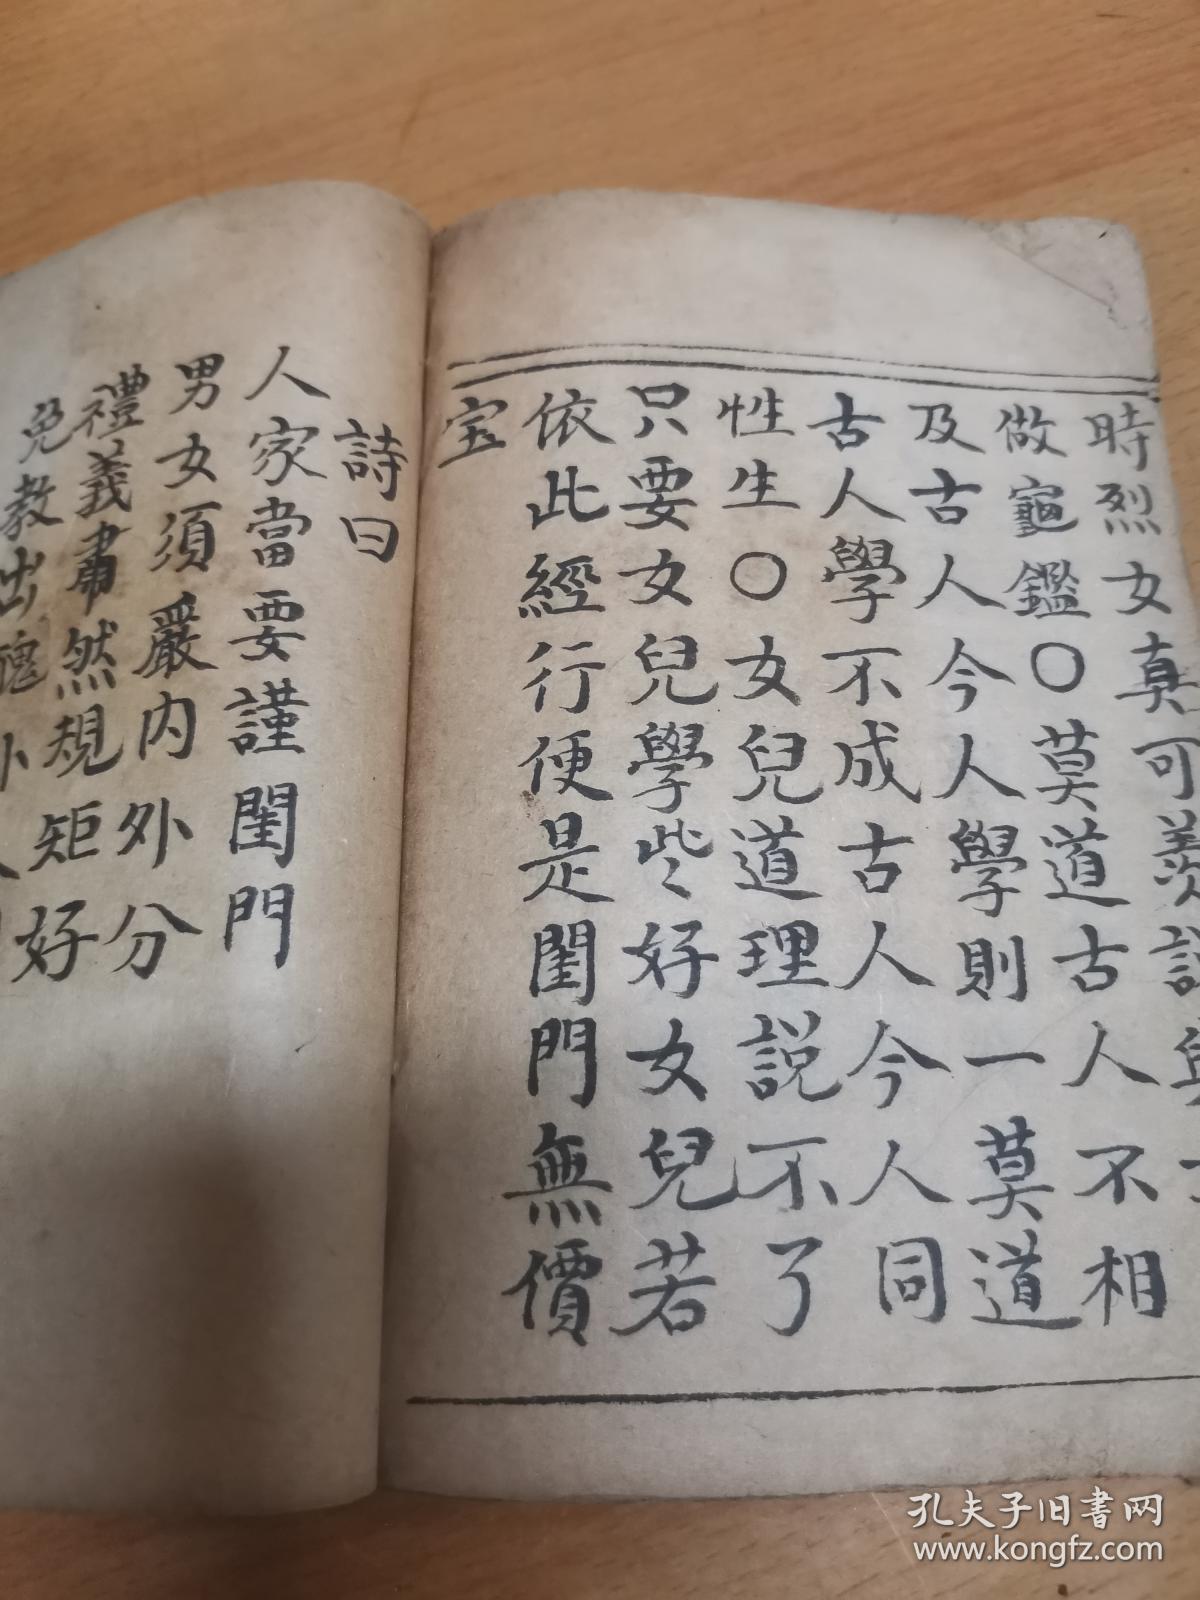 時烈女真可羨說與
做龜鑑〇莫道古人不相
及古人今人學則一莫道
古人學不成古人今人同
性生〇女兒道理説不了
只要女兒學些好女兒若
依此經行便是閨門無價
宝
詩曰
人家當要謹閨門
男女須嚴內外分
禮義肅然規矩好
免教出醜外人
孔夫子旧书网
www.kongfz.com